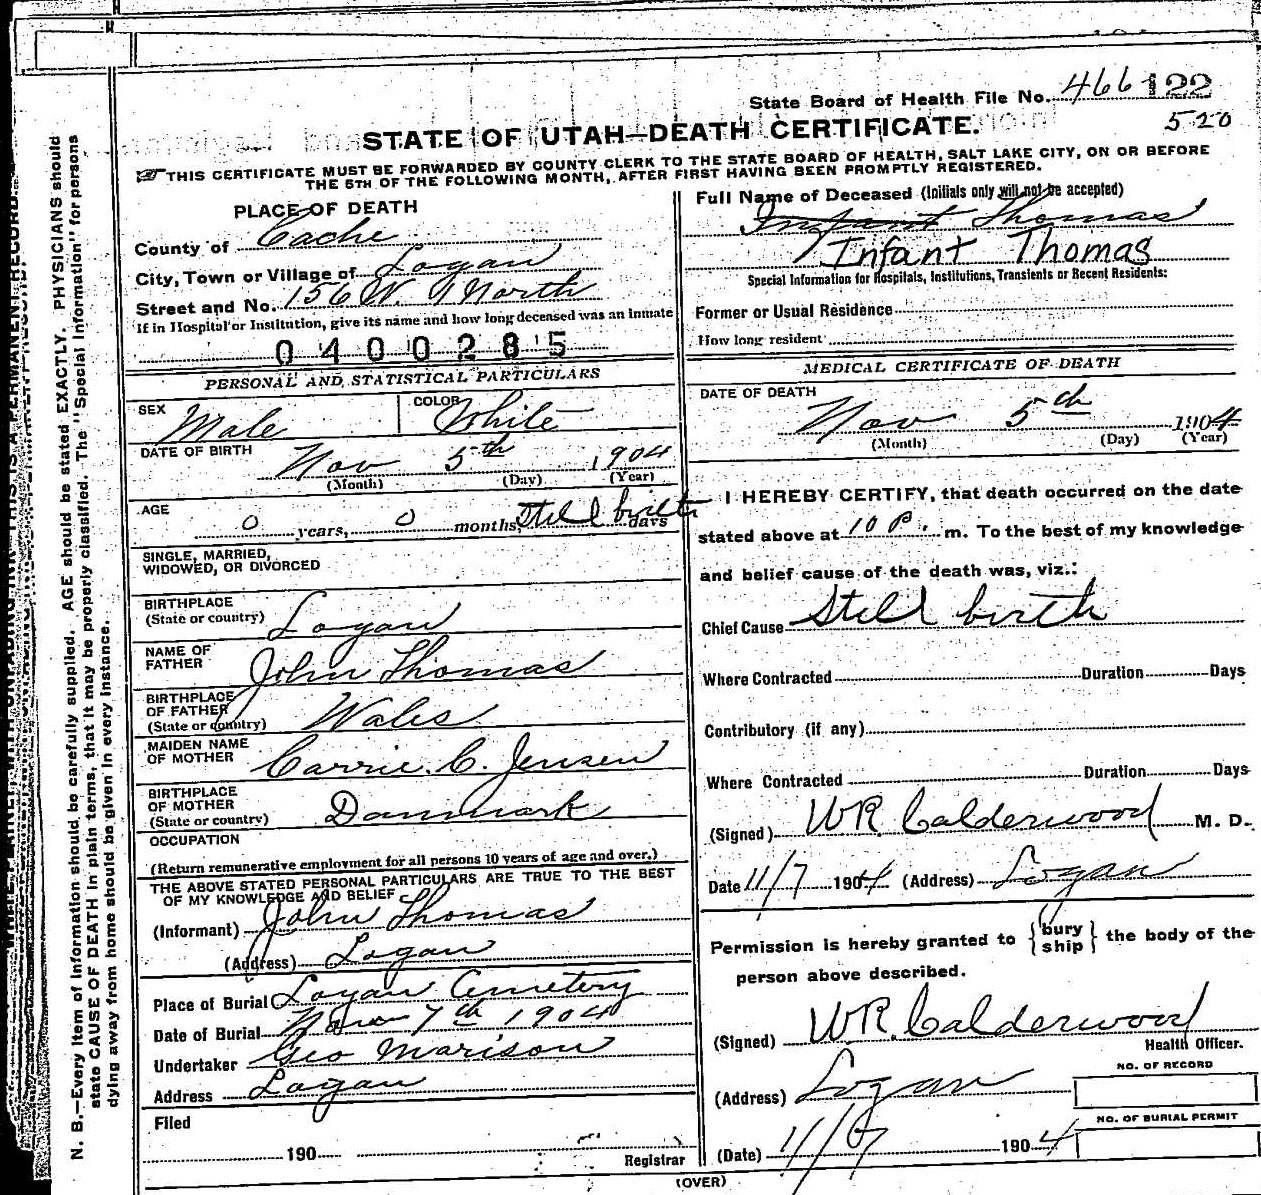 State Board of Health File No. 466 122
520
STATE OF UTAH—DEATH CERTIFICATE.
THIS CERTIFICATE MUST BE FORWARDED BY COUNTY CLERK TO THE STATE BOARD OF HEALTH, SALT LAKE CITY, ON OR BEFORE
THE 5TH OF THE FOLLOWING MONTH, AFTER FIRST HAVING BEEN PROMPTLY REGISTERED.
PLACE OF DEATH
County of Cache
City, Town or Village of Logan
Street and No. 156 W. 1 North
If in Hospital or Institution, give its name and how long deceased was an inmate
0400285
PERSONAL AND STATISTICAL PARTICULARS
SEX Male COLOR White
DATE OF BIRTH Nov 5th 1904
(Month) (Day) (Year)
AGE 0 years, 0 months, Still birth days
SINGLE, MARRIED,
WIDOWED, OR DIVORCED
BIRTHPLACE
(State or country) Logan
NAME OF
FATHER John Thomas
BIRTHPLACE
OF FATHER
(State or country) Wales
MAIDEN NAME
OF MOTHER Carrie C. Jensen
BIRTHPLACE
OF MOTHER
(State or country) Danmark
OCCUPATION
(Return remunerative employment for all persons 10 years of age and over.)
THE ABOVE STATED PERSONAL PARTICULARS ARE TRUE TO THE BEST
OF MY KNOWLEDGE AND BELIEF
(Informant) John Thomas
(Address) Logan
Place of Burial Logan Cemetery
Date of Burial Nov 7th 1904
Undertaker Geo Marison
Address Logan
Filed
190
Registrar
Full Name of Deceased (Initials only will not be accepted)
Infant Thomas
Infant Thomas
Special Information for Hospitals, Institutions, Transients or Recent Residents:
Former or Usual Residence
How long resident
MEDICAL CERTIFICATE OF DEATH
DATE OF DEATH
Nov 5th 1904
(Month) (Day) (Year)
I HEREBY CERTIFY, that death occurred on the date
stated above at 10 P. m. To the best of my knowledge
and belief cause of the death was, viz.:
Chief Cause Still birth
Where Contracted Duration Days
Contributory (if any)
Where Contracted Duration Days
(Signed) WR Calderwood M. D.
Date 11/7 1904 (Address) Logan
Permission is hereby granted to {bury ship} the body of the
person above described.
(Signed) WR Calderwood
Health Officer.
(Address) Logan
NO. OF RECORD
NO. OF BURIAL PERMIT
(Date) 11/7 1904
(OVER)
N. B.—Every item of information should be carefully supplied. AGE should be stated EXACTLY. PHYSICIANS should
state CAUSE OF DEATH in plain terms, that it may be properly classified. The "Special Information" for persons
dying away from home should be given in every instance.